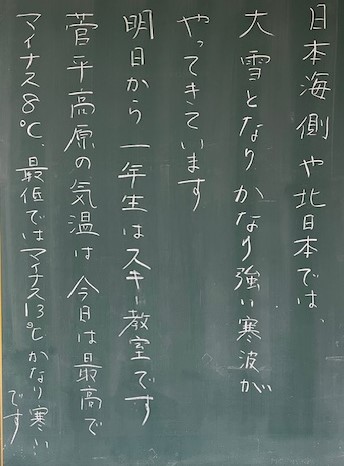 日本海側や北日本では、
大雪となりかなり強い寒波が
やってきています
明日から一年生はスキー教室です
菅平高原の気温は今日は最高で
マイナス8℃、最低ではマイナス13℃かなり寒いです